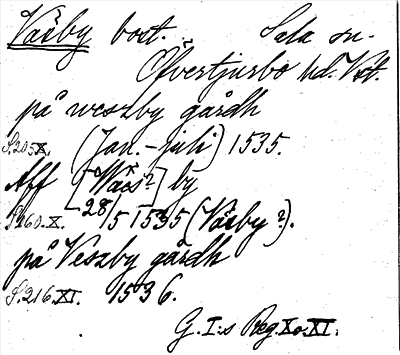 Väsby bost. Sala sn.
Öfvertjurbo hd. Vst.
på weszby gårdh
S.205 X. (Jan.-juli) 1535.
Aff [Wass?] by
S.260.X. 28/5 1535 (Väsby?).
på Veszby gårdh
S.216.XI. 1536.
G. I:s Reg. X o. XI.